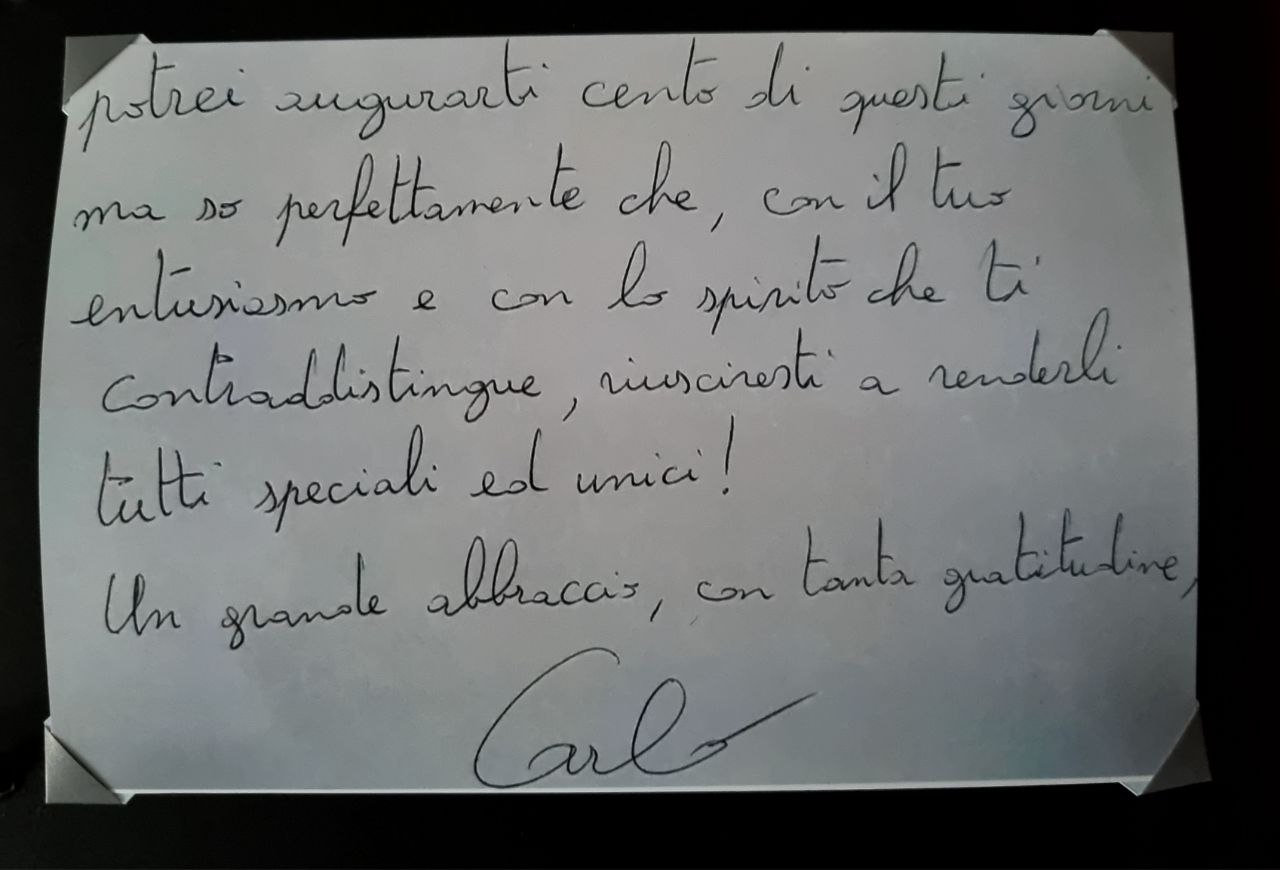 potrei augurarti cento di questi giorni
ma so perfettamente che, con il tuo
entusiasmo e con lo spirito che ti
contraddistingue, riusciresti a renderli
tutti speciali ed unici!
Un grande abbraccio, con tanta gratitudine,
Carlo